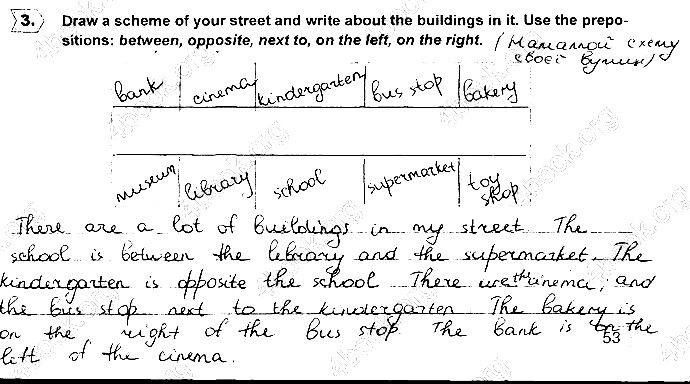 3. Draw a scheme of your street and write about the buildings in it. Use the prepo-
sitions: between, opposite, next to, on the left, on the right. (Намалюй схему
своєї вулиці)
bank cinema kindergarten bus stop bakery
museum library school supermarket toy shop
There are a lot of buildings in my street. The
school is between the library and the supermarket. The
kindergarten is opposite the school. There are the cinema, and
the bus stop next to the kindergarten. The bakery is
on the right of the bus stop. The bank is on the
53
left of the cinema.
4book.org